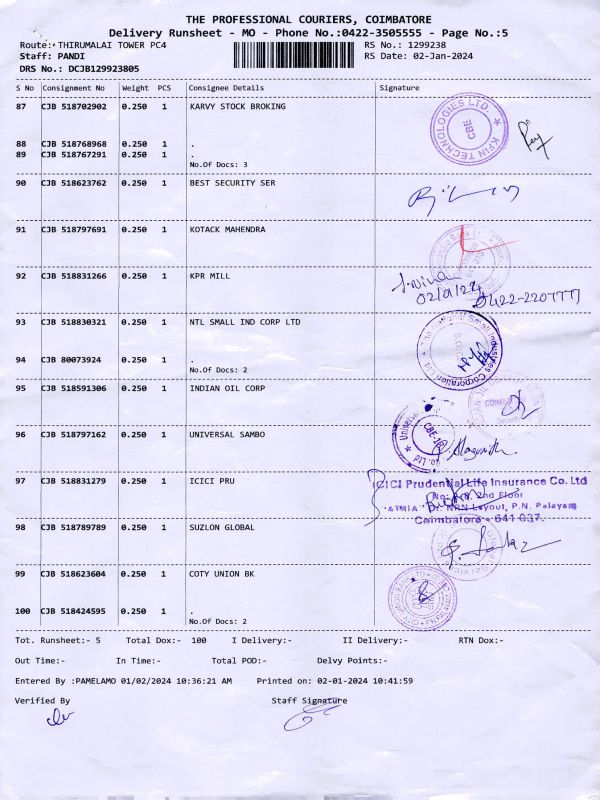 THE PROFESSIONAL COURIERS, COIMBATORE
Delivery Runsheet - MO - Phone No.:0422-3505555 - Page No.:5
Route: THIRUMALAI TOWER PC4 RS No.: 1299238
Staff: PANDI RS Date: 02-Jan-2024
DRS No.: DCJB129923805
S No Consignment No Weight PCS Consignee Details Signature
87 CJB 518702902 0.250 1 KARVY STOCK BROKING
KFIN TECHNOLOGIES LTD. CBE
88 CJB 518768968 0.250 1 .
89 CJB 518767291 0.250 1 .
No.Of Docs: 3
90 CJB 518623762 0.250 1 BEST SECURITY SER
91 CJB 518797691 0.250 1 KOTACK MAHENDRA
92 CJB 518831266 0.250 1 KPR MILL
02/01/24
0422-2207777
93 CJB 518830321 0.250 1 NTL SMALL IND CORP LTD
The National Small Industries Corporation Ltd.
94 CJB 80073924 0.250 1 .
No.Of Docs: 2
95 CJB 518591306 0.250 1 INDIAN OIL CORP
96 CJB 518797162 0.250 1 UNIVERSAL SAMBO
Universal
97 CJB 518831279 0.250 1 ICICI PRU
ICICI Prudential Life Insurance Co. Ltd
2nd Floor
Layout, P.N. Palayam
Coimbatore - 641 037.
98 CJB 518789789 0.250 1 SUZLON GLOBAL
99 CJB 518623604 0.250 1 COTY UNION BK
100 CJB 518424595 0.250 1 .
No.Of Docs: 2
Tot. Runsheet:- 5 Total Dox:- 100 I Delivery:- II Delivery:- RTN Dox:-
Out Time:- In Time:- Total POD:- Delvy Points:-
Entered By :PAMELAMO 01/02/2024 10:36:21 AM Printed on: 02-01-2024 10:41:59
Verified By Staff Signature